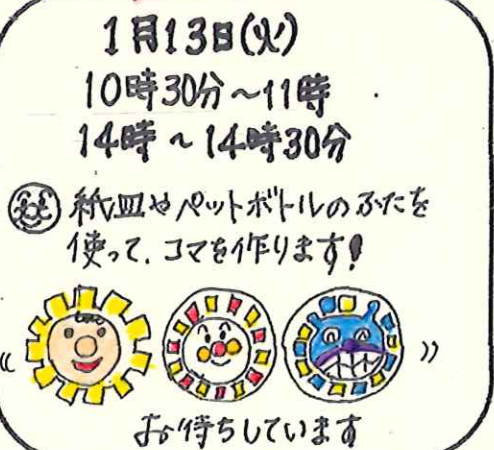 1月13日(火)
10時30分～11時
14時～14時30分
紙皿やペットボトルのふたを
使って、コマを作ります!
お待ちしています